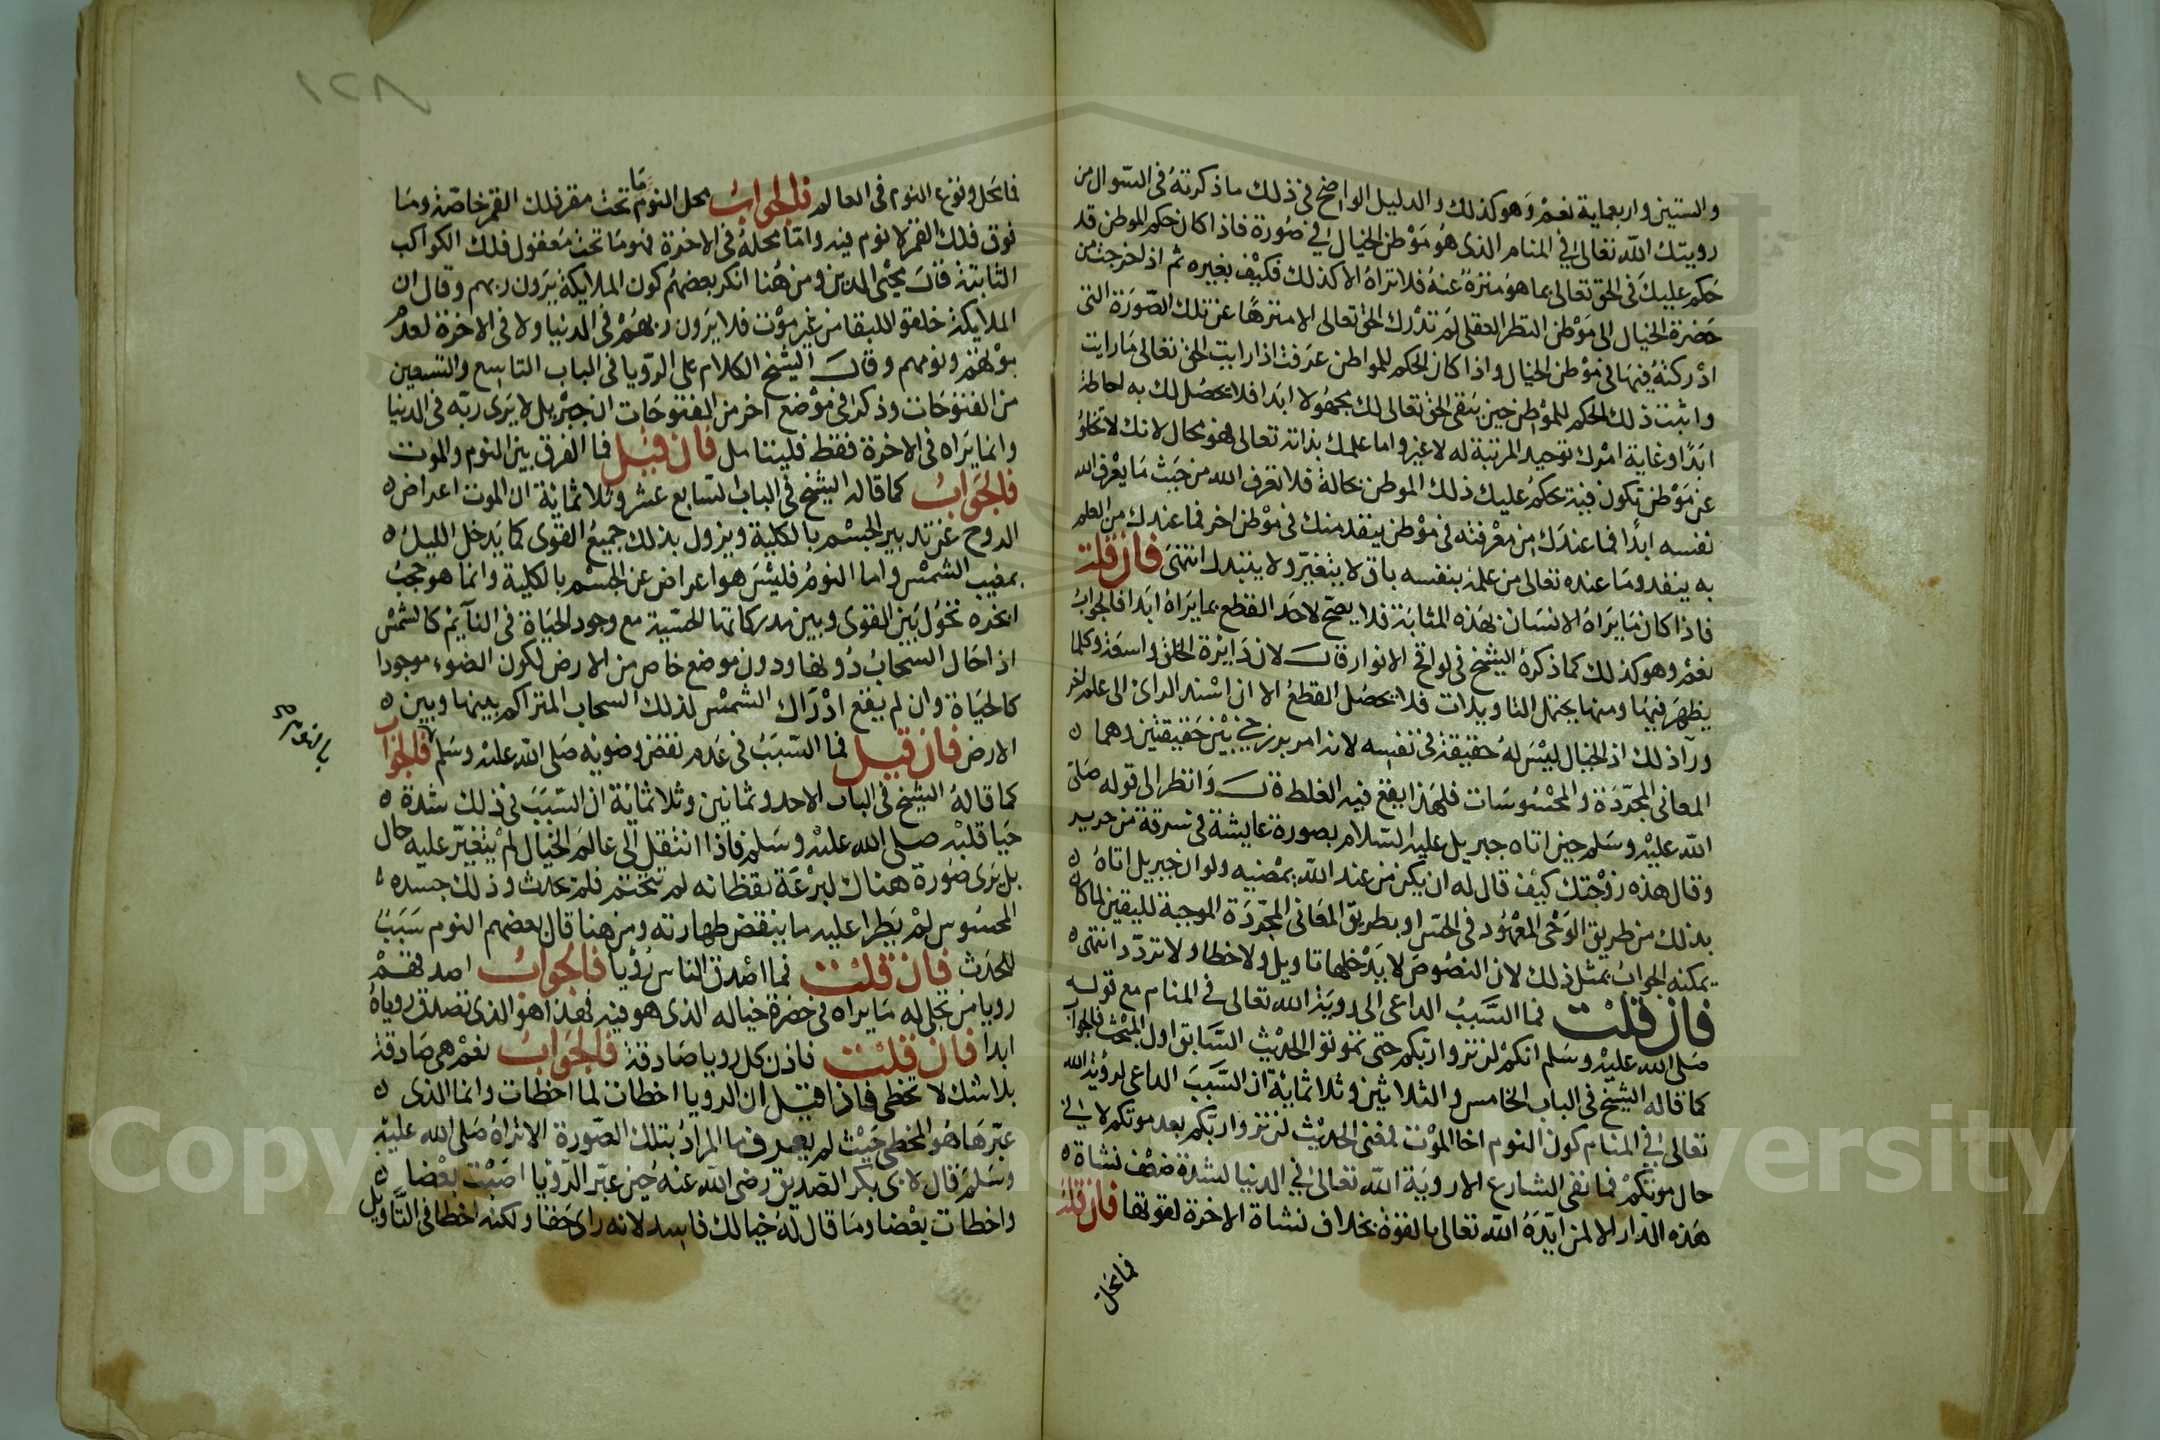 والستين واربعماية نعم وهو كذلك والدليل الواضح في ذلك ما ذكرته في السوال من
رويتك الله تعالى في المنام الذى هو موطن الخيال في صورة فاذا كان حكم الموطن قد
حكم عليك في الحق تعالى بما هو منزه عنه فلا تراه الا كذلك فكيف بغيره ثم اذا خرجت من
حضرة الخيال الى موطن النظر العقلى لم تدرك الحق تعالى الا منزها عن تلك الصورة التى
ادركته فيها في موطن الخيال واذا كان الحكم للمواطن عرفت اذا رايت الحق تعالى ما رايت
واثبت ذلك الحكم للموطن حين يبقى الحق تعالى لك مجهولا ابدا فلا يحصل لك به احاطة
ابدا وغاية امرك توحيد المرتبة له لا غير واما علمك بذاته تعالى فهو محال لانك لا تخلو
عن موطن تكون فيه يحكم عليك ذلك الموطن بحاله فلا تعرف الله من حيث ما يعرف الله
نفسه ابدا فما عندك من معرفته في موطن ينفد منك في موطن اخر فما عندك من العلم
به ينفد وما عنده تعالى من علمه بنفسه باق لا يتغير ولا يتبدل انتهى فان قلت
فاذا كان ما يراه الانسان بهذه المثابة فلا يصح لاحد القطع بما يراه ابدا فالجواب
نعم وهو كذلك كما ذكره الشيخ في لواقح الانوار قال لان دايرة الخلق واسعة وكلما
يظهر فيها ومنها يحتمل التاويلات فلا يحصل القطع الا ان استند الراى الى علم اخر
ورا ذلك اذ الخيال ليس له حقيقة في نفسه لانه امر برزخي بين حقيقتين وهما
المعانى المجردة والمحسوسات فلهذا يقع فيه الغلط قال وانظر الى قوله صلى
الله عليه وسلم حين اتاه جبريل عليه السلام بصورة عايشة في سرقة من حرير
وقال هذه زوجتك كيف قال له ان يكن من عند الله يمضيه ولو ان جبريل اتاه
بذلك من طريق الوحى المعهود في الحس او بطريق المعانى المجردة الموجبة لليقين لما كان
يمكنه الجواب بمثل ذلك لان النصوص لا يدخلها تاويل ولا خطا ولا تردد انتهى
فان قلت فما السبب الداعى الى روية الله تعالى في المنام مع قوله
صلى الله عليه وسلم انكم لن تروا ربكم حتى تموتوا الحديث السابق اول المبحث فالجواب
كما قاله الشيخ في الباب الخامس والثلاثين وثلاثماية ان السبب الداعى لروية الله
تعالى في المنام كون النوم اخا الموت فمعنى الحديث لن تروا ربكم بعد موتكم لا في
حال موتكم فما نفى الشارع الا روية الله تعالى في الدنيا لشدة ضعف نشاة
هذه الدار الا لمن ايده الله تعالى بالقوة بخلاف نشاة الاخرة لقوتها فان قلت
فما محل
فما محل وقوع النوم في العالم فالجواب محل النوم ما تحت مقعر فلك القمر خاصة وما
فوق فلك القمر لا نوم فيه واما محله في الاخرة فهو ما تحت مقعر فلك الكواكب
الثابتة قال محيى الدين ومن هنا انكر بعضهم كون الملايكة يرون ربهم وقال ان
الملايكة خلقوا للبقا من غير موت فلا يرون ربهم في الدنيا ولا في الاخرة لعدم
موتهم ونومهم وقال الشيخ الكلام على الرويا في الباب التاسع والتسعين
من الفتوحات وذكر في موضع اخر من الفتوحات ان جبريل لا يرى ربه في الدنيا
وانما يراه في الاخرة فقط فليتامل فان قيل فما الفرق بين النوم والموت
فالجواب كما قاله الشيخ في الباب السابع عشر وثلاثماية ان الموت اعراض
الروح عن تدبير الجسم بالكلية ويزول بذلك جميع القوى كما يدخل الليل
بمغيب الشمس واما النوم فليس هو اعراض عن الجسم بالكلية وانما هو حجب
ابخره تحول بين القوى وبين مدركاتها الحسية مع وجود الحياة في النايم كالشمس
اذا حال السحاب دونها ودون موضع خاص من الارض لكون الضوء موجودا
كالحياة وان لم يقع ادراك الشمس لذلك السحاب المتراكم بينها وبين
الارض فان قيل فما السبب في عدم نقض وضويه صلى الله عليه وسلم فالجواب
بالنوم
كما قاله الشيخ في الباب الاحد وثمانين وثلاثماية ان السبب في ذلك شدة
حياة قلبه صلى الله عليه وسلم فاذا انتقل الى عالم الخيال لم يتغير عليه حال
بل يرى صورة هناك لسرعة يقظانه لم تختم فلم تحدث وذلك جسده
المحسوس لم يطرا عليه ما ينقض طهارته ومن هنا قال بعضهم النوم سبب
للحدث فان قلت فما اصدق الناس رويا فالجواب اصدقهم
رويا من تجلى له ما يراه في حضرة خياله الذى هو فيه فهذا هو الذى تصدق روياه
ابدا فان قلت فاذن كل رويا صادقة فالجواب نعم هى صادقة
بلا شك لا تخطى فاذا قيل ان الرويا اخطات لما اخطات وانما الذى
عبرها هو المخطى حيث لم يعرف ما المراد بتلك الصورة الا تراه صلى الله عليه
وسلم قال لابى بكر الصديق رضى الله عنه حين عبر الرويا اصبت بعضا
واخطات بعضا وما قال له خيالك فاسد لانه راى حقا ولكنه اخطا في التاويل
Copy
versity